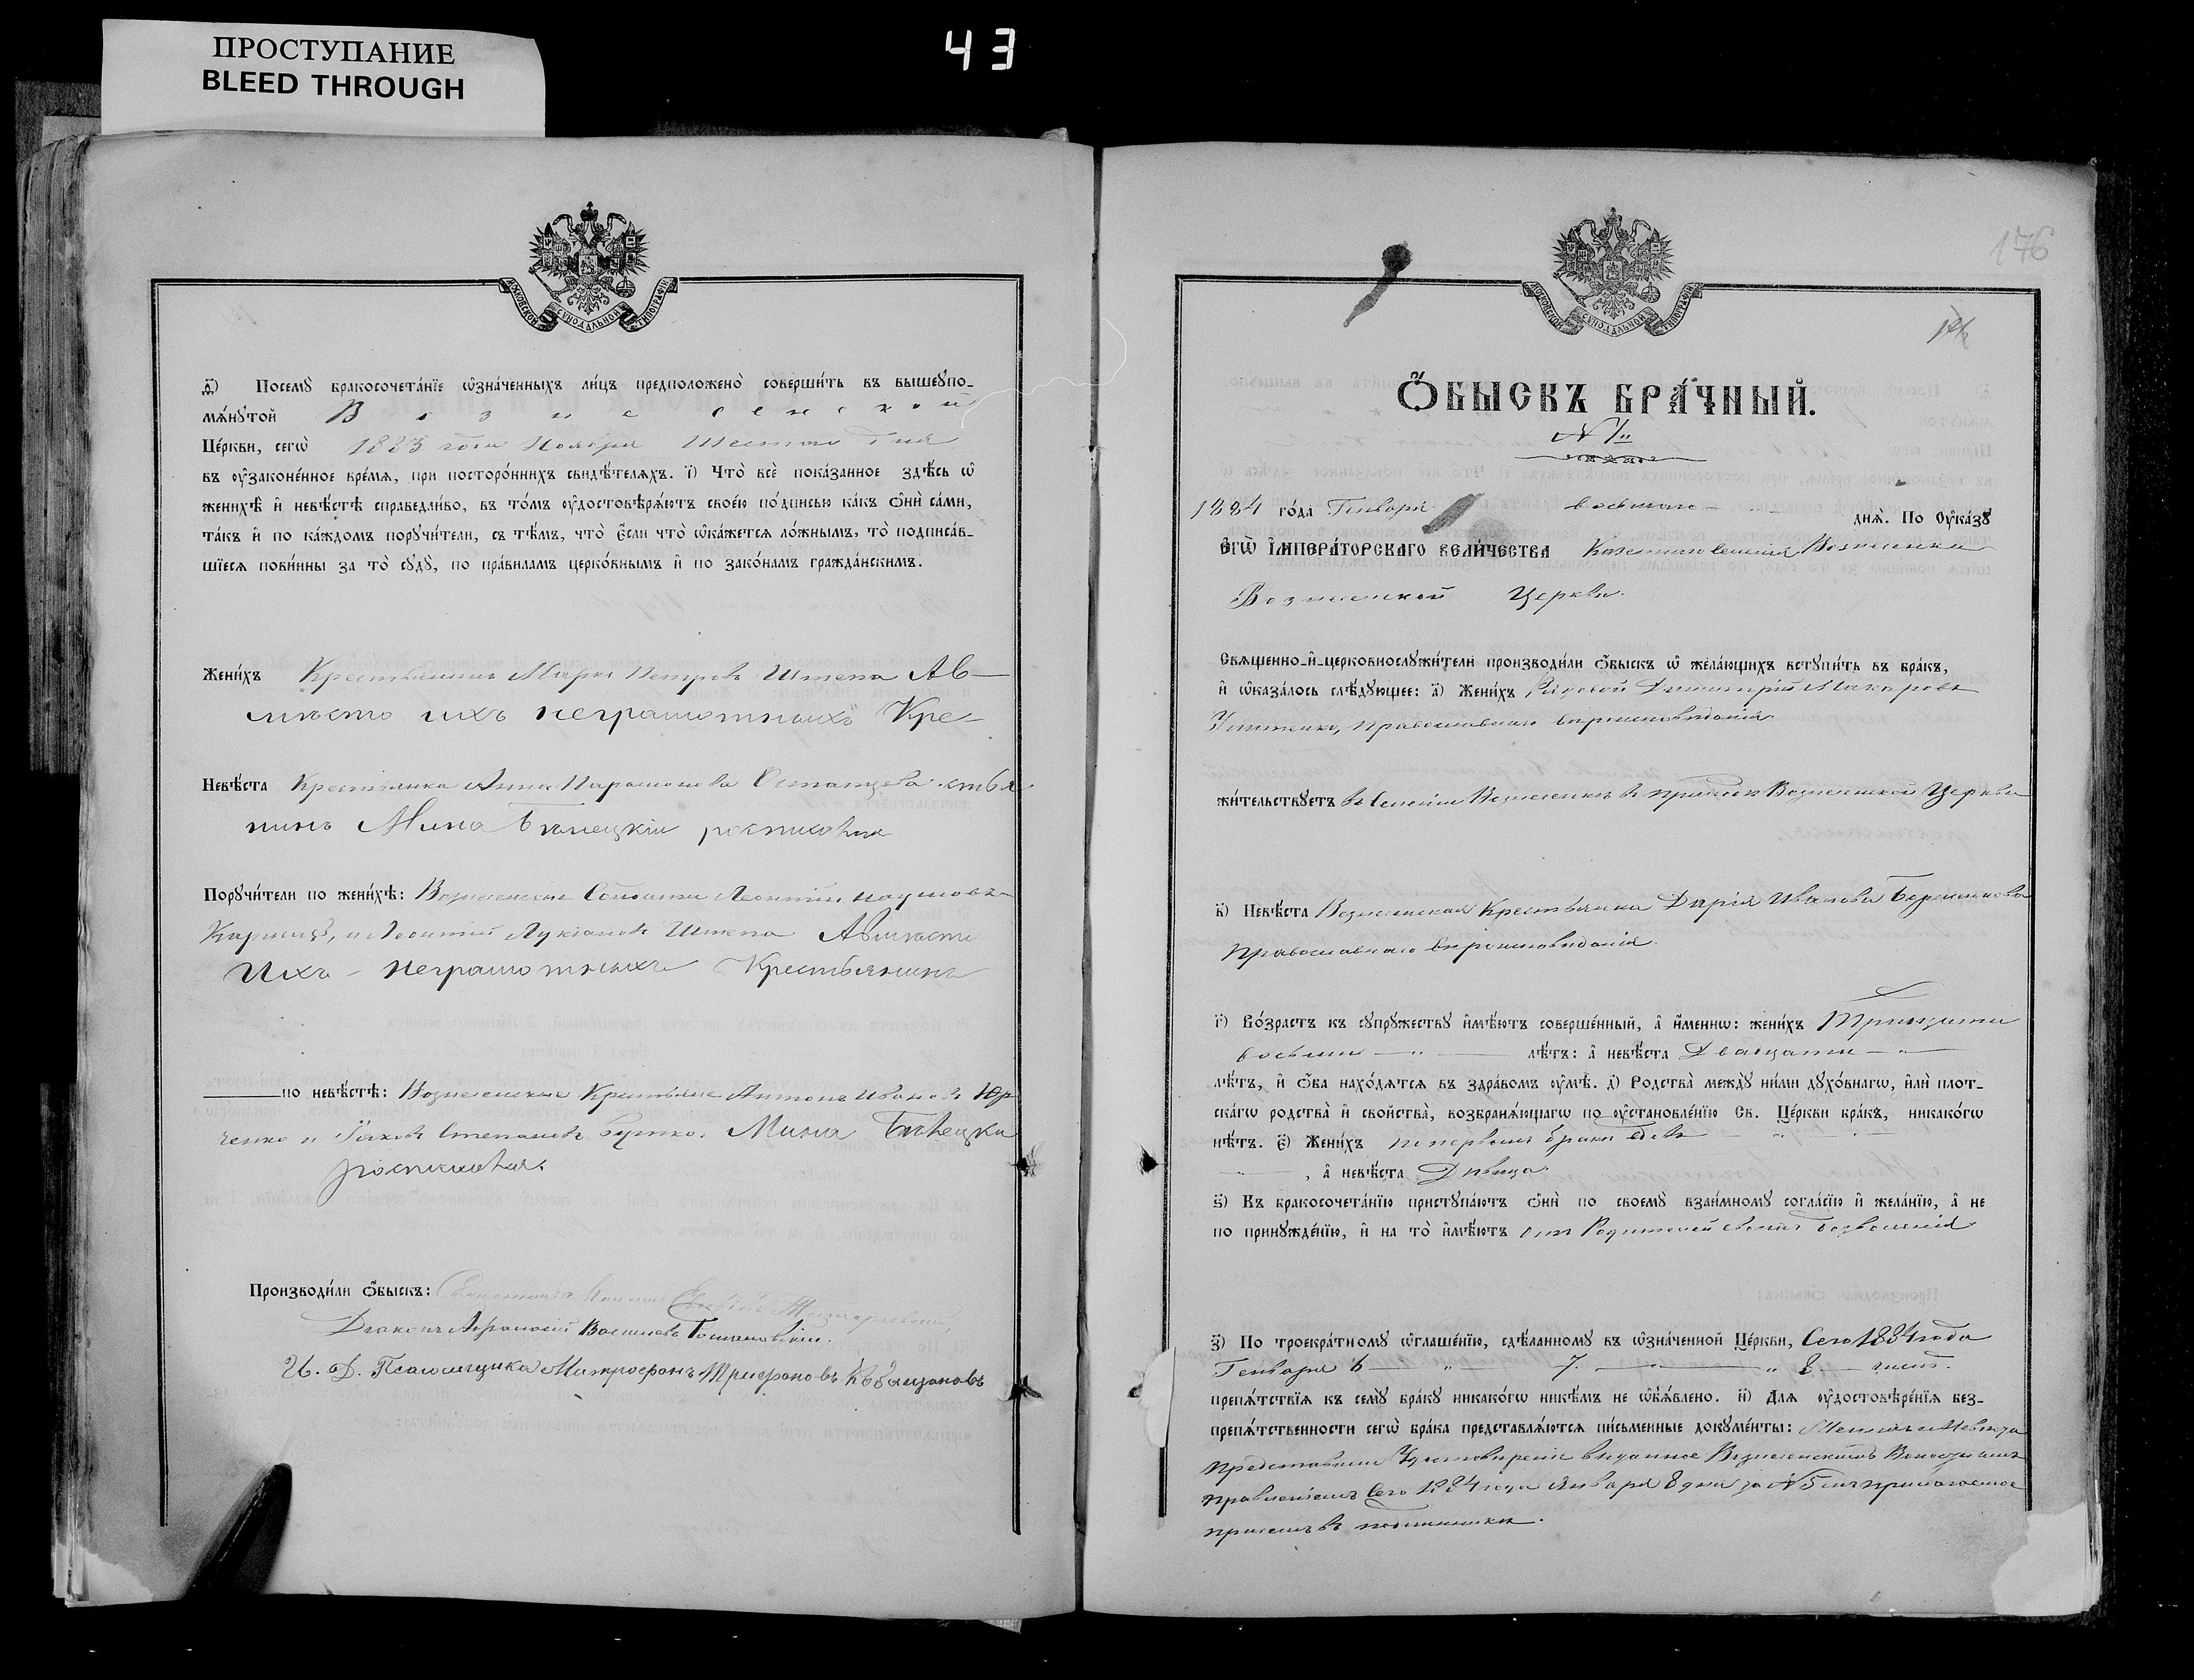 ПРОСТУПАНИЕ
BLEED THROUGH
43
МОСКОВСКОЙ СѴНОДАЛЬНОЙ ТИПОГРАФІИ
ѳ҃) Посемꙋ̀ бракосочета́нїе ѡ҆зна́ченныхъ ли́цъ предположено̀ соверши́ть въ вышеꙋпо-
мѧ́нꙋтой Вознесенской
Це́ркви, сегѡ̀ 1883 года Ноября Шестаго дня
въ оу҆законе́нное вре́мѧ, при посторо́ннихъ свидѣ́телѧхъ. і҃) Что̀ всѐ пока́занное здѣ́сь ѡ҆
женихѣ̀ и҆ невѣ́стѣ справедли́во, въ то́мъ оу҆достовѣрѧ́ютъ свое́ю по́дписью ка́къ ѻ҆нѝ са́ми,
та́къ и҆ по ка́ждомъ порꙋчи́тели, съ тѣ́мъ, что̀ є҆сли что̀ ѡ҆ка́жетсѧ ло́жнымъ, то̀ подписа́в-
шїесѧ пови́нны за то̀ сꙋдꙋ̀, по пра́виламъ церко́внымъ и҆ по зако́намъ гражда́нскимъ.
Жени́хъ Крестьянинъ Маркъ Петровъ Штепа АВ-
мѣсто ихъ неграмотныхъ Кре-
Невѣ́ста Крестьянка Анна Парамонова Остапцева стья
нинъ Мина Бѣлецкій росписался
Порꙋчи́тели по женихѣ̀: Вознесенскіе Солдаты Леонтій Наумовъ
и Леонтій Лукіановъ Штепа Авмѣсто
Ихъ неграмотныхъ Крестьянинъ
по невѣ́стѣ: Вознесенскіе Крестьяне Антонъ Ивановъ Юр
ченко и Яковъ Степановъ Бутко. Мина Бѣлецкій
росписался
Производи́ли ѻ҆́быскъ: Священникъ
Діаконъ Афанасій Васильевъ
И. Д. Псаломщика Митрофанъ Трифоновъ
176
МОСКОВСКОЙ СѴНОДАЛЬНОЙ ТИПОГРАФІИ
Ѻ҆́БЫСКЪ БРА́ЧНЫЙ.
№ 1.
1884 го́да Генваря восьмаго днѧ̀. По Оу҆ка́зꙋ
Є҆гѡ̀ И҆мпера́торскагѡ Вели́чества селенія Вознесенки
Вознесенской Церкви.
Свѧще́нно-и҆-церковнослꙋжи́тели производи́ли ѻ҆́быскъ ѡ҆ жела́ющихъ встꙋпи́ть въ бра́къ,
и҆ ѡ҆каза́лось слѣ́дꙋющее: а҃) Жени́хъ Рядовой Димитрій Макаровъ
православнаго вѣроисповѣданія.
жи́тельствꙋетъ въ селеніи Вознесенкѣ въ приходѣ Вознесенской Церкви
в҃) Невѣ́ста Вознесенская Крестьянка Дарія Иванова
Православнаго вѣроисповѣданія.
г҃) Во́зрастъ къ сꙋпрꙋ́жествꙋ и҆мѣ́ютъ соверше́нный, а҆ и҆́меннѡ: жени́хъ Тридцати
восьми лѣ́тъ: а҆ невѣ́ста Двадцати
лѣ́тъ, и҆ ѻ҆́ба нахо́дѧтсѧ въ здра́вомъ оу҆мѣ̀. д҃) Родства̀ междꙋ̀ ни́ми дꙋхо́внагѡ, и҆лѝ плот-
ска́гѡ родства̀ и҆ свойства̀, возбранѧ́ющагѡ по оу҆становле́нїю Св. Це́ркви бра́къ, никако́гѡ
нѣ́тъ. є҃) Жени́хъ по первымъ бракѣ вдовъ
, а҆ невѣ́ста Дѣвица.
ѕ҃) Къ бракосочета́нїю пристꙋпа́ютъ ѻ҆нѝ по своемꙋ̀ взаи́мномꙋ согла́сїю и҆ жела́нїю, а҆ не
по принꙋжде́нїю, и҆ на то̀ и҆мѣ́ютъ отъ Родителей своихъ дозволенія
з҃) По троекра́тномꙋ ѡ҆глаше́нїю, сдѣ́ланномꙋ въ ѡ҆зна́ченной Це́ркви, Сего 1884 года
Генваря 6 7. 8 чиселъ.
препѧ́тствїѧ къ семꙋ̀ бра́кꙋ никако́гѡ никѣ́мъ не ѡ҆б̾ѧ́влено. и҃) Длѧ̀ оу҆достовѣре́нїѧ без-
препѧ́тственности сегѡ̀ бра́ка представлѧ́ютсѧ пи́сьменные докꙋме́нты: Женихъ и Невѣста
представили Удостовѣреніе выданное Вознесенскимъ Волостнымъ
правленіемъ Сего 1884 года Января 8 дня за № 5 прилагаемое
при семъ въ подлинникѣ.